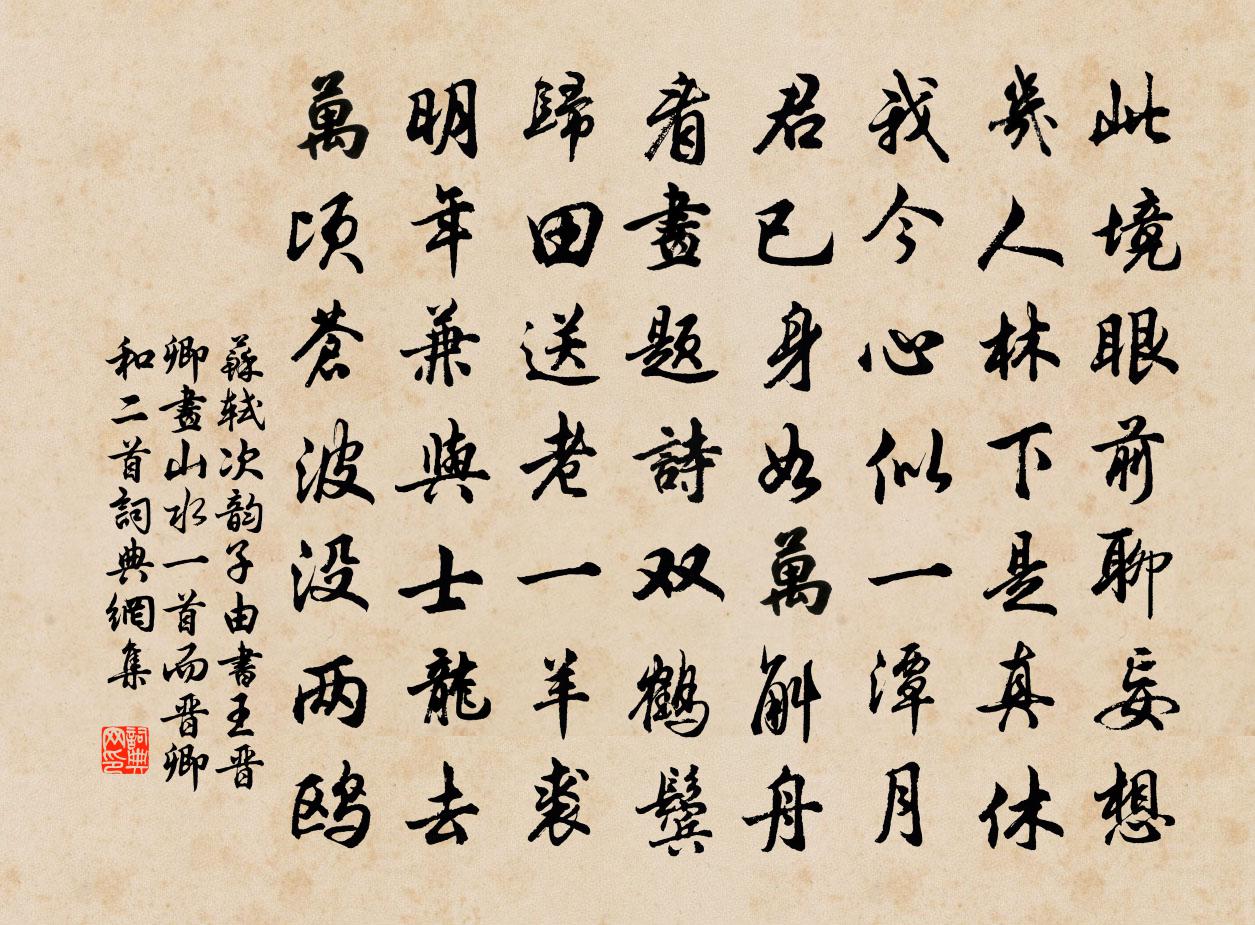 此境眼前聊妄想
幾人林下是真休
我今心似一潭月
君已身如萬斛舟
看畫題詩双鶴鬢
歸田送老一羊裘
明年兼與士龍去
萬頃蒼波没两鸥
蘇軾次韵子由書王晋
卿畫山水一首而晋卿
和二首詞典網集
詞典
网印